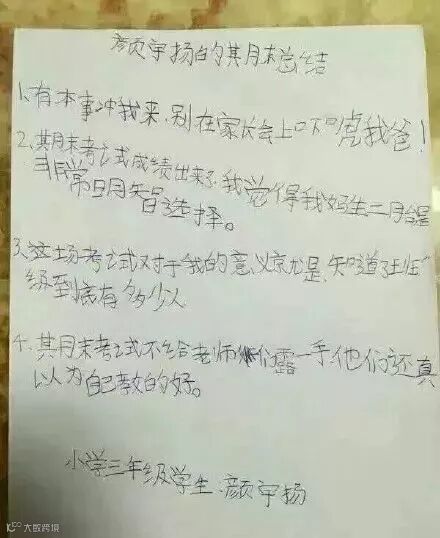 颜宇扬的其月末总结
1.有本事冲我来,别在家长会上口下口虎我爸!
2.其月末考试成绩出来了,我觉得我妈生二月台是
非常日月智选择。
3.这场考试对于我的意义京尤是,知道了班
级到底有多少人
4.其月末考试不给老师们露一手,他们还真
以为自己教的好。
小学三年级学生.颜宇扬
大数跨境